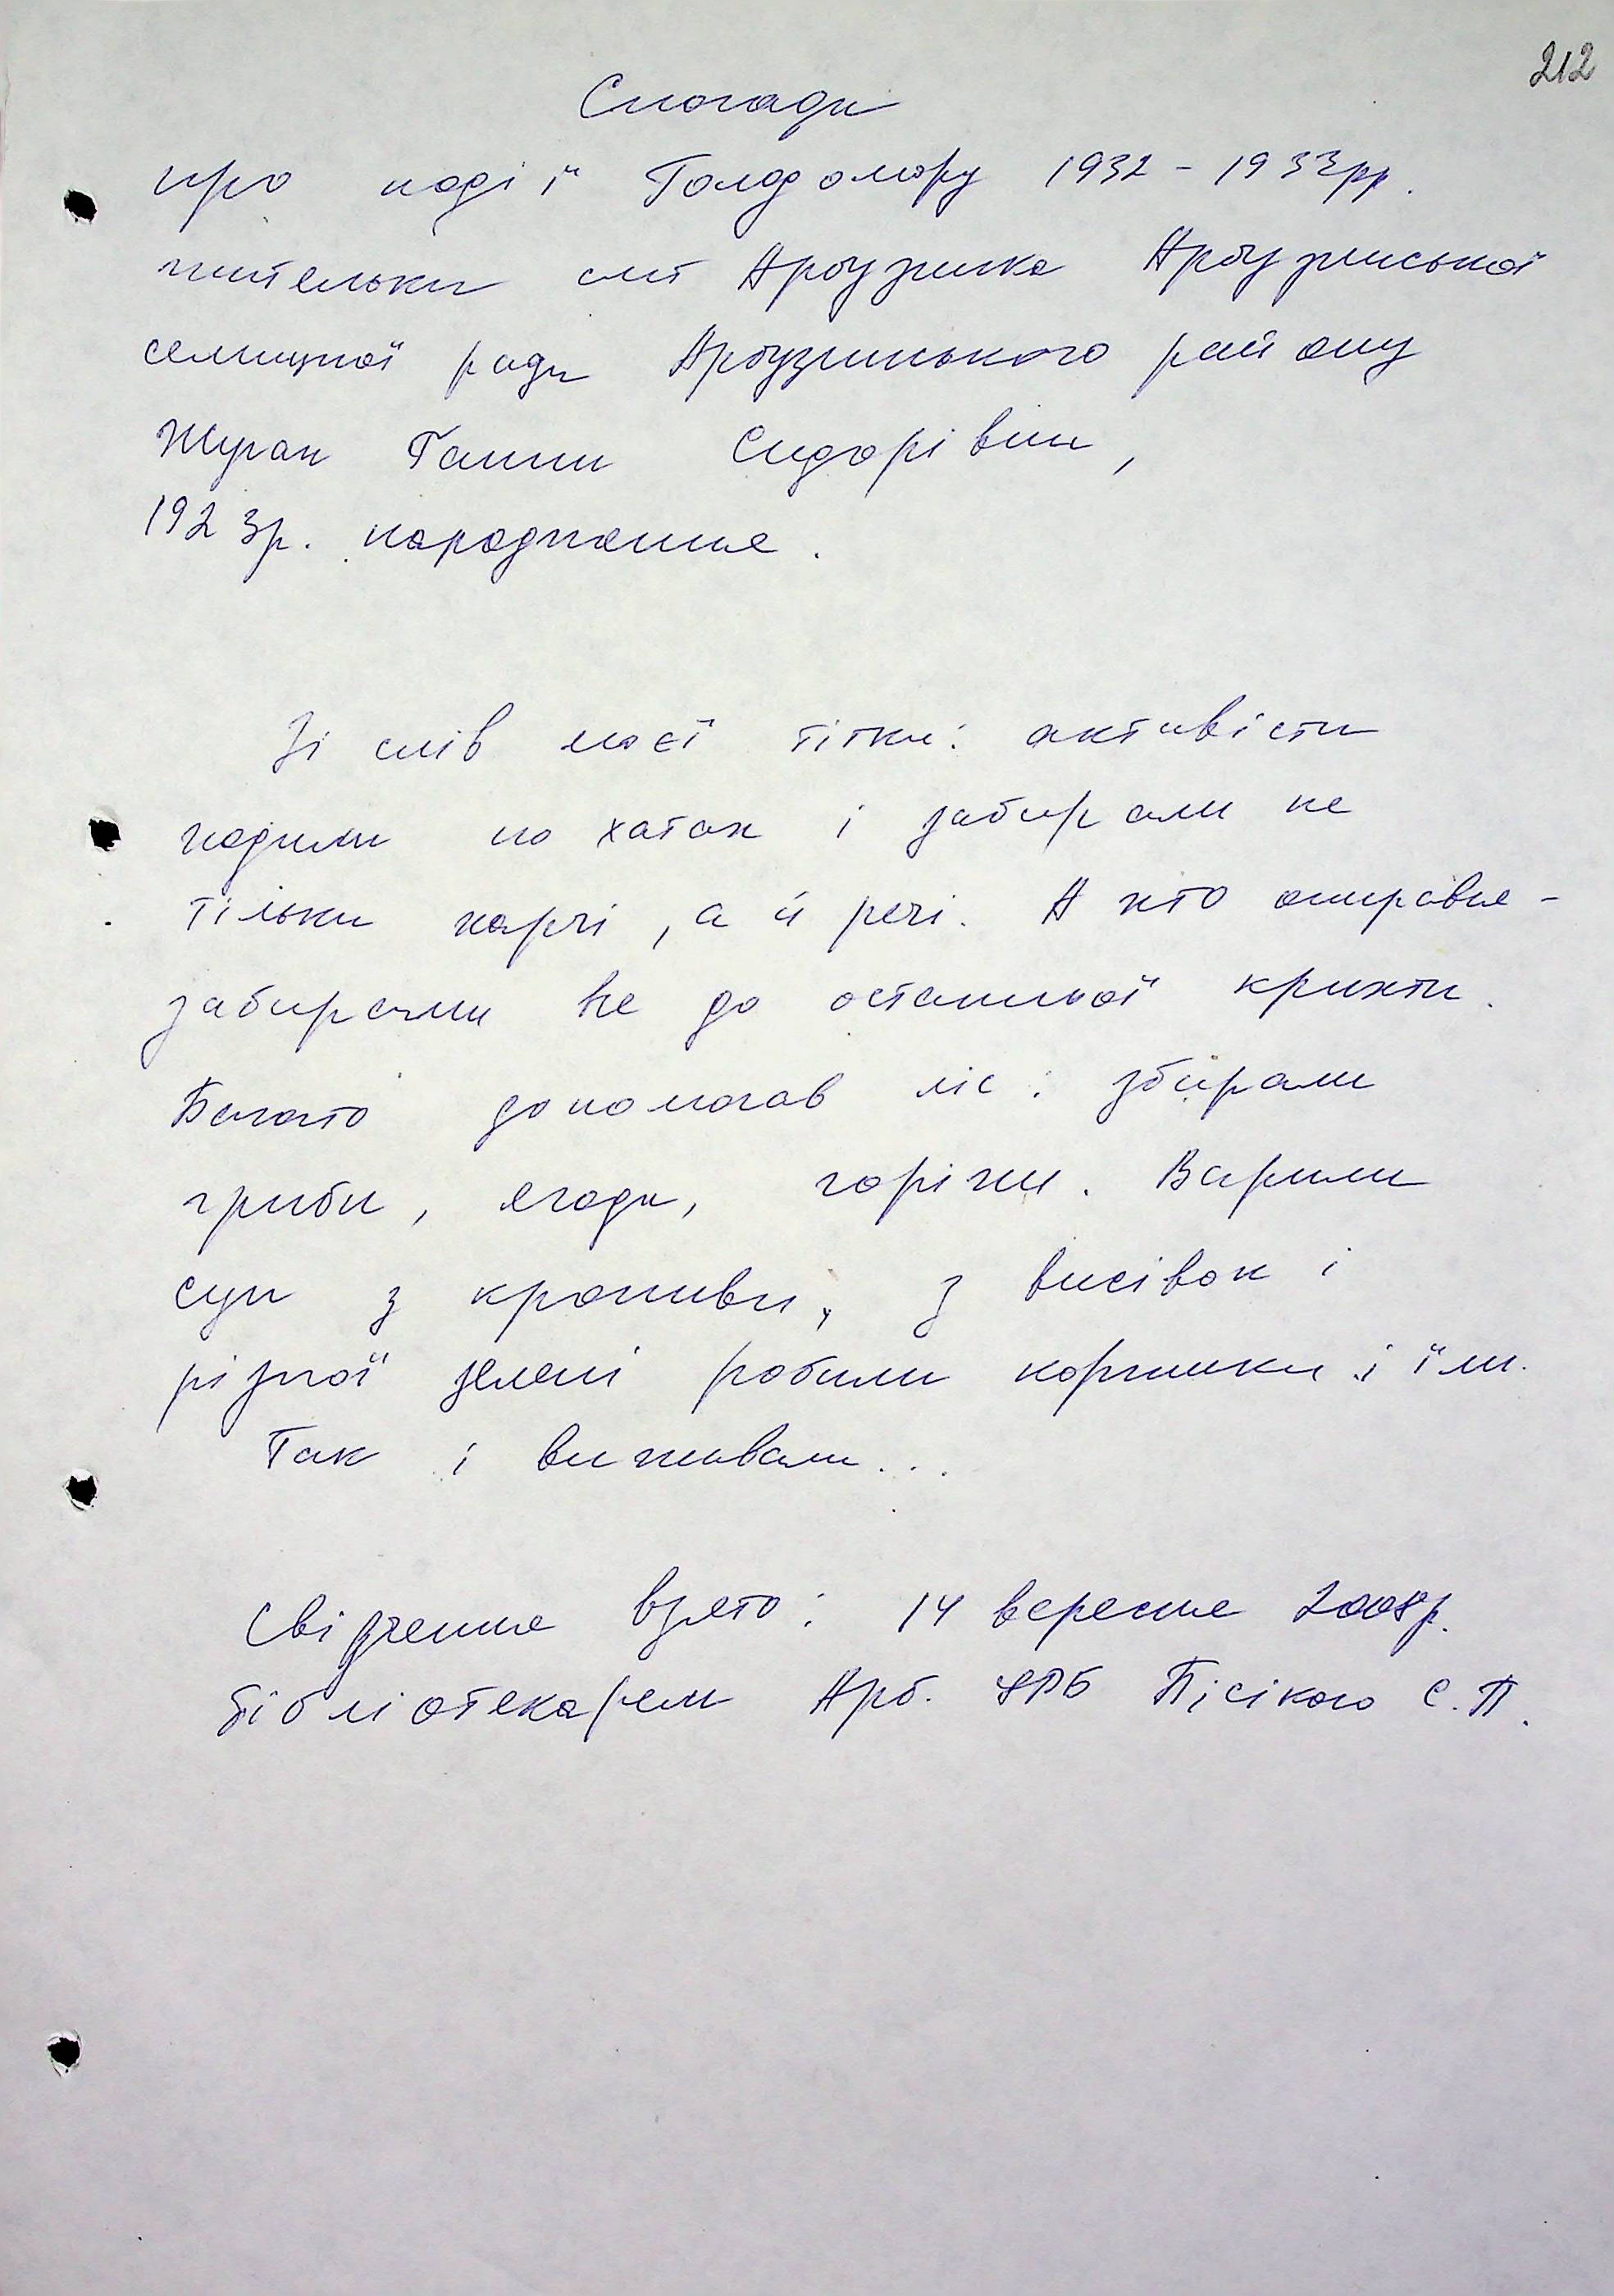 212
Спогади
про події Голодомору 1932 - 1933рр.
жительки смт Арбузинка Арбузинської
селищної ради Арбузинського району
Журан Ганни Сидорівни,
1923р. народження.
Зі слів моєї тітки: активісти
ходили по хатах і забирали не
тільки харчі, а й речі. А хто опирався -
забирали все до останньої крихти.
Багато допомагав ліс: збирали
гриби, ягоди, горіхи. Варили
суп з кропиви, з висівок і
різної зелені робили коржики і їли.
Так і виживали...
Свідчення взято: 14 вересня 2008р.
бібліотекарем Арб. ЦРБ Пісікою С.П.